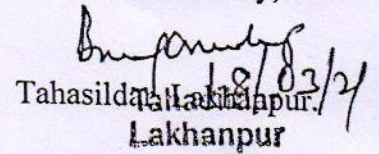 18/03/21
Tahasildar, Lakhanpur.
Tahasildar
Lakhanpur